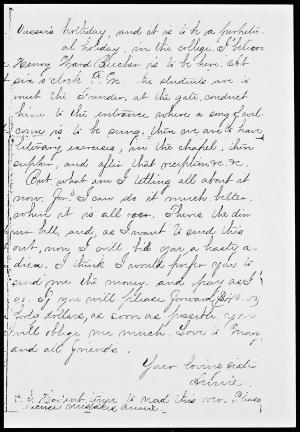 Vassar's birthday, and it is to be a perpetu-
al holiday, in the college. I believe
Henry Ward Beecher is to be here. At
six o'clock P.M. the students are to
meet the Founder, at the gate, conduct
him to the entrance where a song of wel-
come is to be sung, then we are to have
literary exercises, in the chapel, then
supper, and after that reception &c. &c.
But what am I telling all about it
now for? I can do it much better
when it is all over. There's the din
ner bell, and, as I want to send this
out, now, I will bid you a hasty a-
dieu. I think I would prefer you to
send me the money, and pay as I
go. If you will please forward
forty dollars, as soon as possible, you
will oblige me much. Love to Mary
and all friends.
Your loving sister
Annie.
P.S. I haven't time to read this over. Please
excuse mistakes Annie.